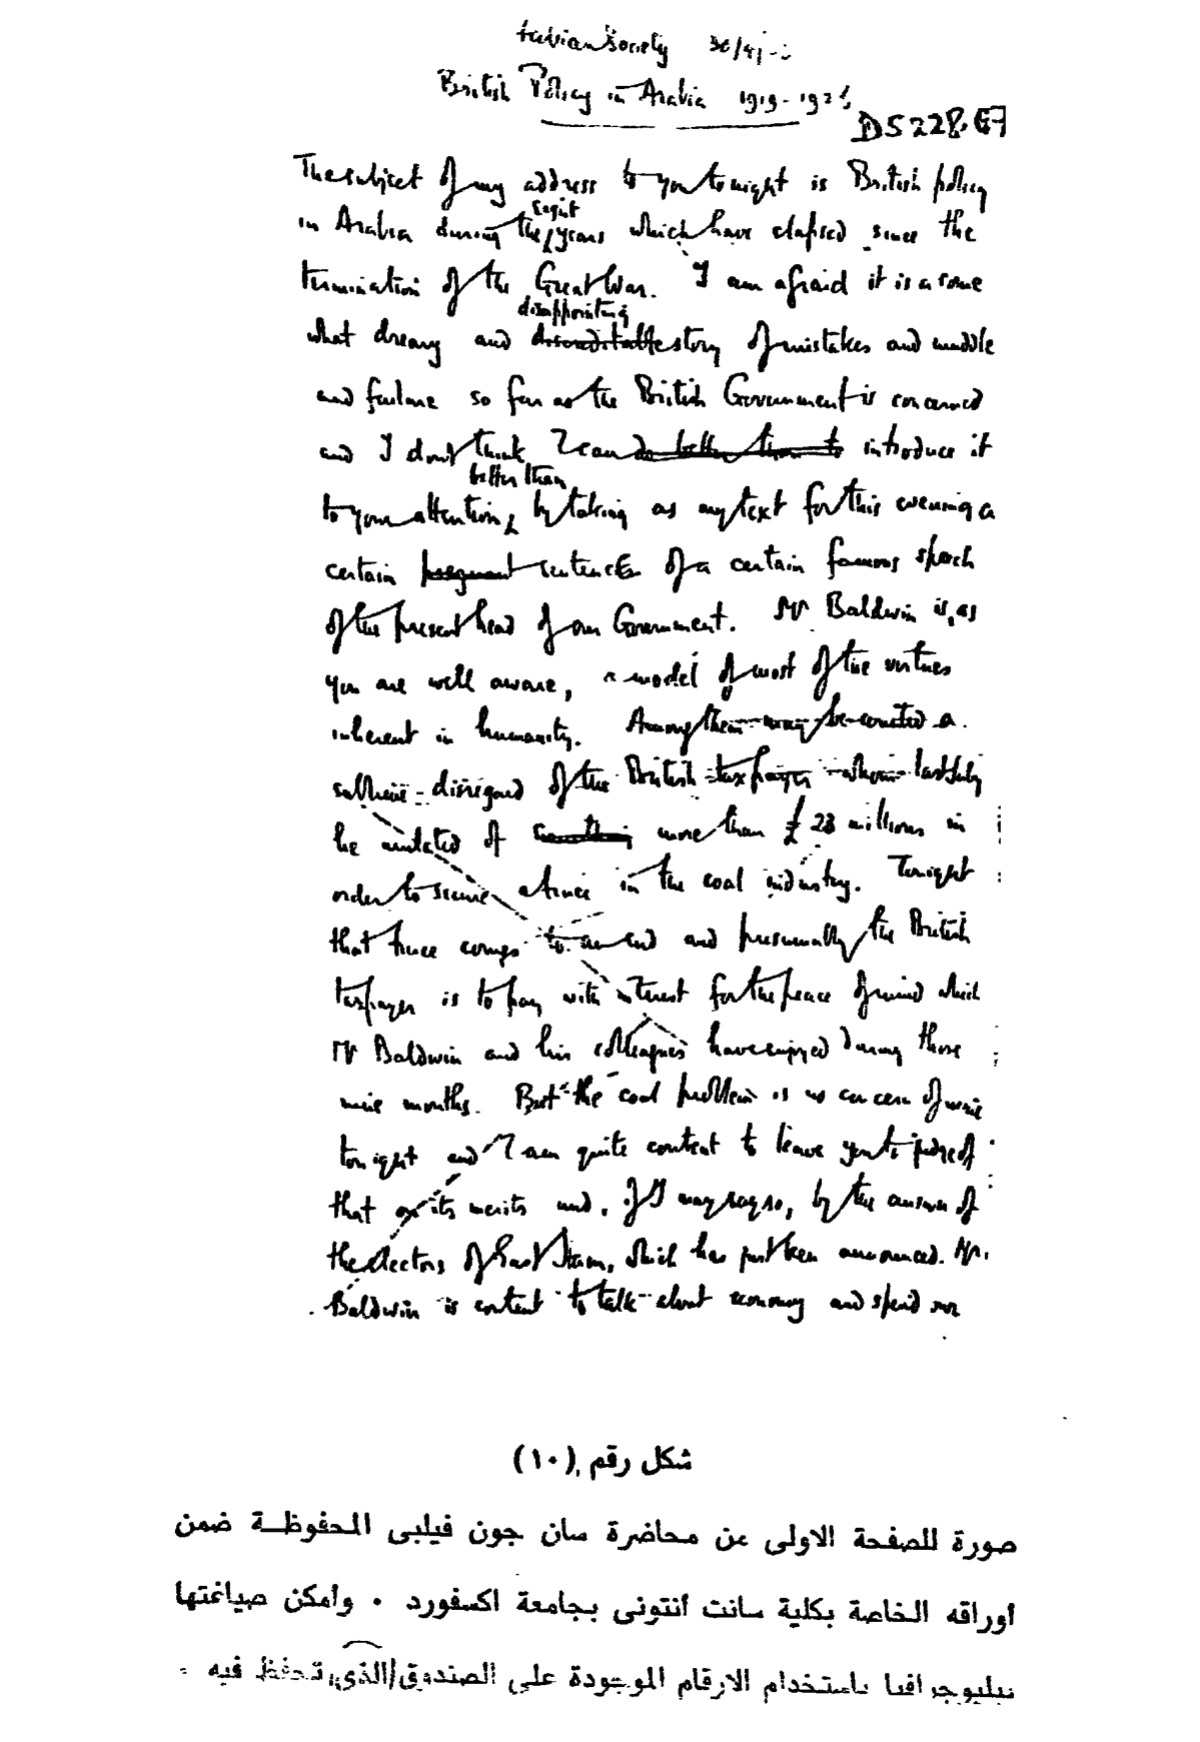 Fabian Society 30/4/
British Policy in Arabia 1919-192
DS228.G7
The subject of my address to you tonight is British policy
eight
in Arabia during the years which have elapsed since the
termination of the Great War. I am afraid it is a some
disappointing
what dreary and discreditable story of mistakes and muddle
and failure so far as the British Government is concerned
and I don't think I can do better than to introduce it
better than
to your attention by taking as my text for this evening a
certain pregnant sentences of a certain famous speech
of the present head of our Government. Mr Baldwin is, as
you are well aware, a model of most of the virtues
inherent in humanity. Among them may be counted a
sublime disregard of the British taxpayer whom last July
he mulcted of more than £ 23 millions in
order to secure a truce in the coal industry. Tonight
that truce comes to an end and presumably the British
taxpayer is to pay with interest for the peace of mind which
Mr Baldwin and his colleagues have enjoyed during those
nine months. But the coal problem is no concern of mine
tonight and I am quite content to leave you to judge of
that on its merits and, if I may say so, by the answer of
the electors of East Ham, which has just been announced. Mr.
Baldwin is content to talk about economy and spend our
شكل رقم (١٠)
صورة للصفحة الاولى عن محاضرة سان جون فيلبى المحفوظة ضمن
أوراقه الخاصة بكلية سانت أنتونى بجامعة اكسفورد . وأمكن صياغتها
ببليوجرافيا باستخدام الارقام الموجودة على الصندوق الذى تحفظ فيه .